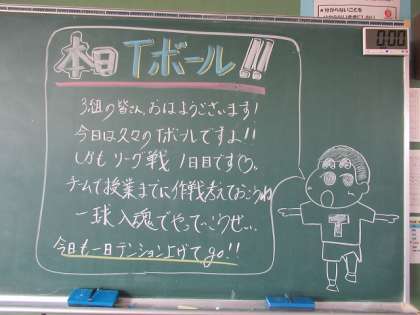 分からないことを
0:00
本日Tボール!!
3組の皆さん、おはようございます!
今日は久々のTボールですよ!!
しかもリーグ戦 1日目です♡。
チームで授業までに作戦考えておこうね
一球入魂でやっていこうぜい。
今日も一日テンション上げてgo!!
T